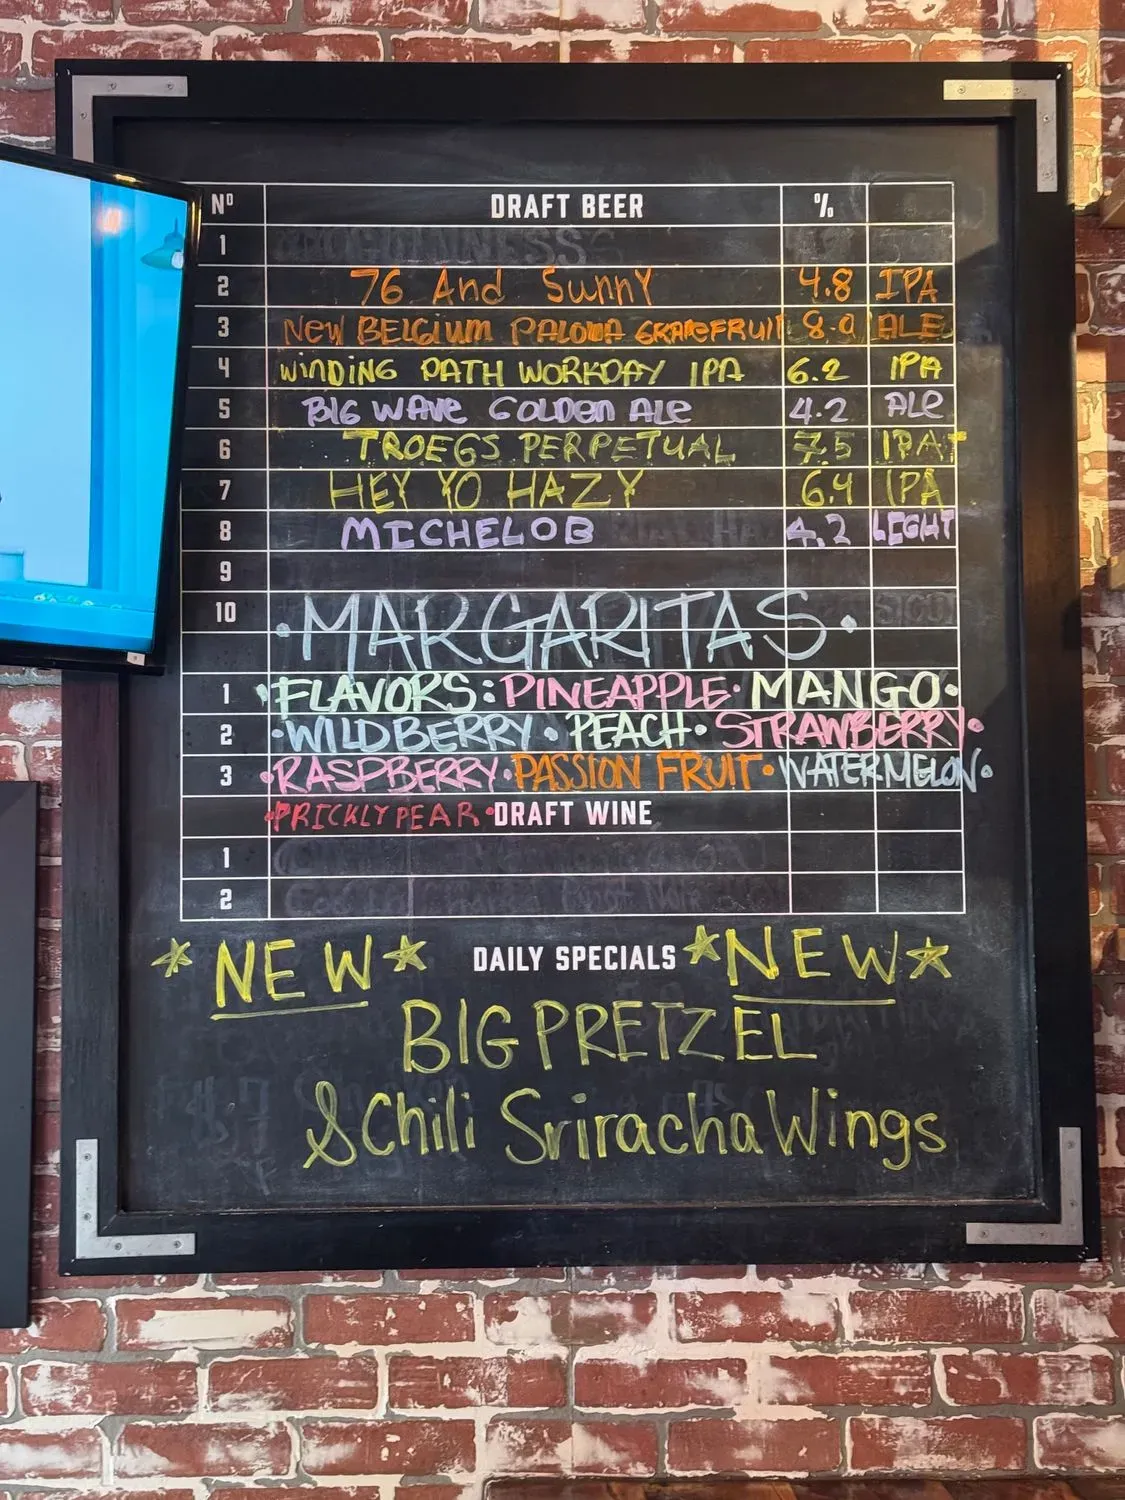 Nº DRAFT BEER %
1 GUINNESS
2 76 And SunnY 4.8 IPA
3 NEW BELGIUM PALOMA GRAPEFRUIT 8.0 ALE
4 WINDING PATH WORKDAY IPA 6.2 IPA
5 BIG WAVE GOLDEN ALE 4.2 ALE
6 TROEGS PERPETUAL 7.5 IPA
7 HEY YO HAZY 6.4 IPA
8 MICHELOB 4.2 LIGHT
9
10 • MARGARITAS •
1 • FLAVORS: PINEAPPLE • MANGO •
2 • WILDBERRY • PEACH • STRAWBERRY •
3 • RASPBERRY • PASSION FRUIT • WATERMELON •
• PRICKLY PEAR • DRAFT WINE
1
2
* NEW * DAILY SPECIALS * NEW *
BIG PRETZEL
& Chili Sriracha Wings